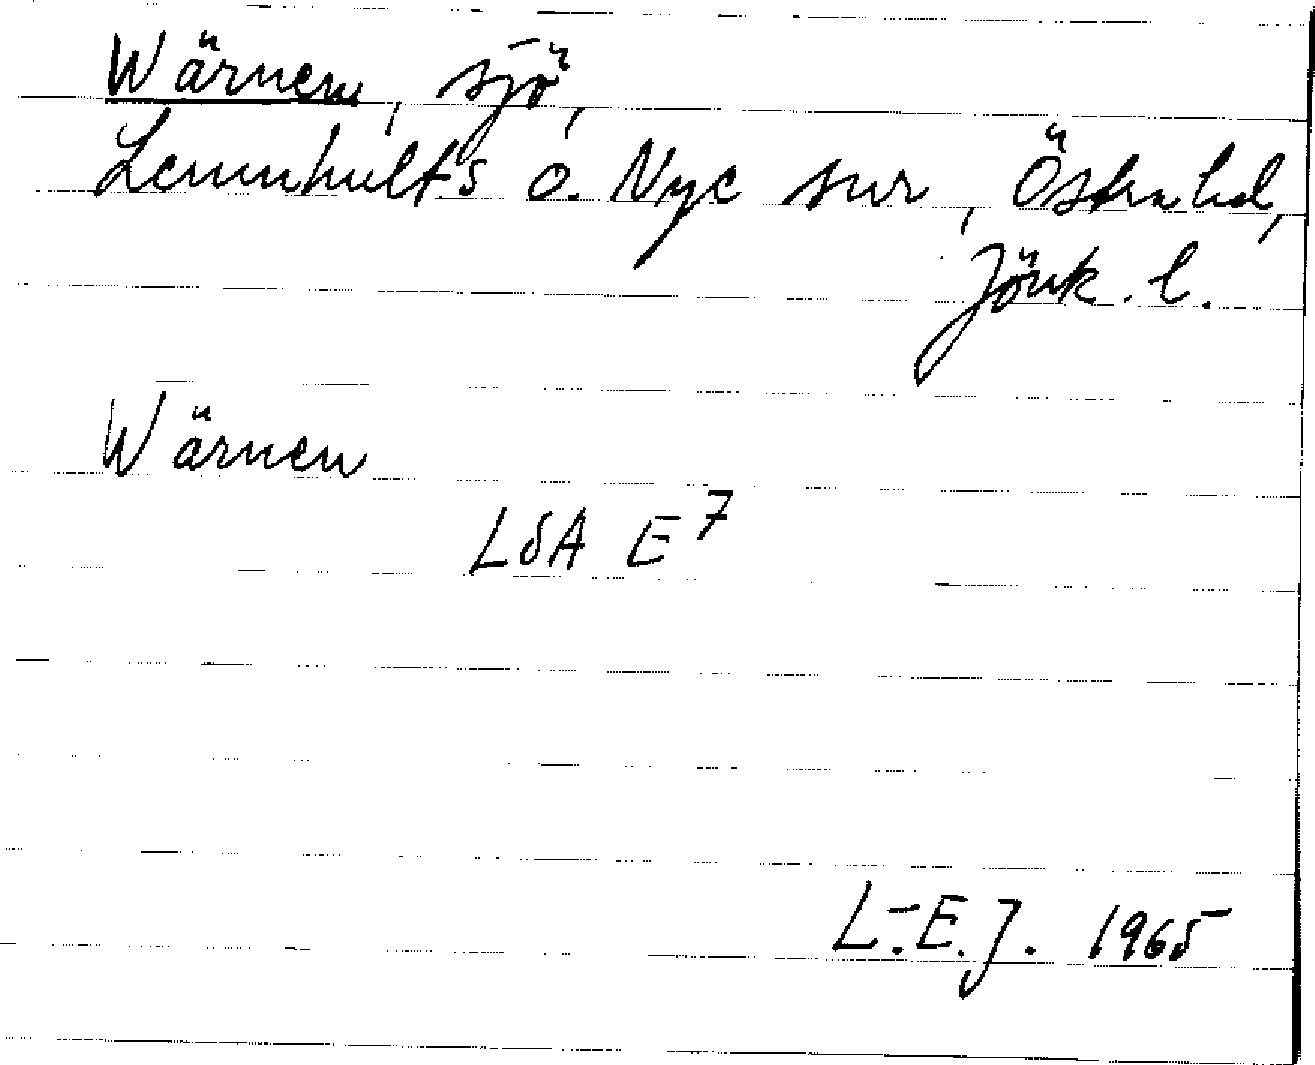 Wärnen, sjö,
Lemnhults o. Nye snr, Östra hd,
Jönk. l.
Wärnen
LSA E 7
L.-E. J. 1965